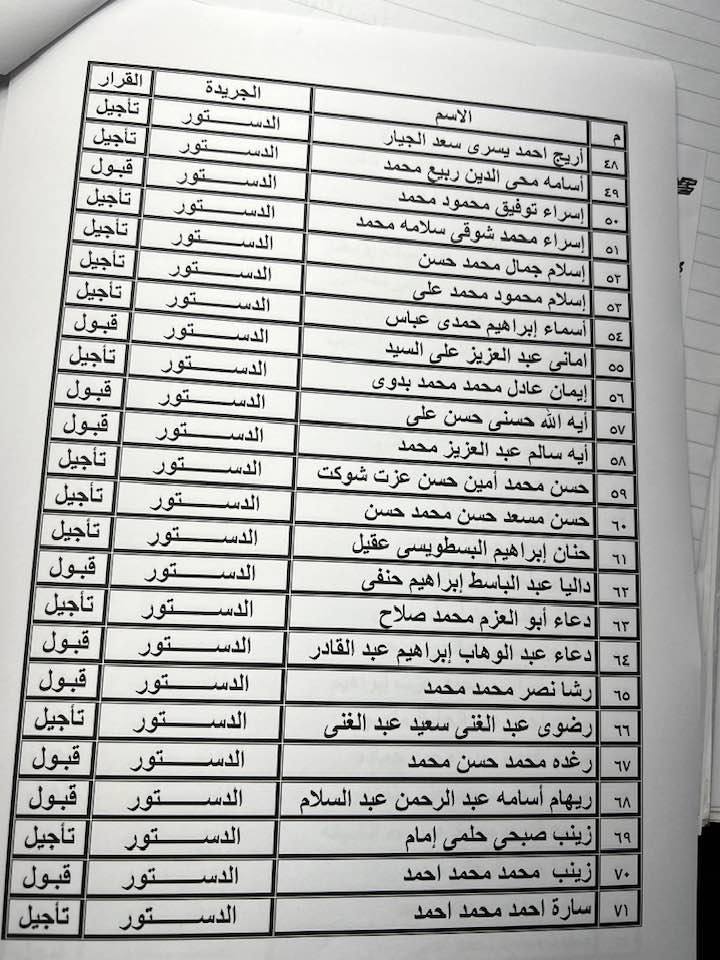 م الاسم الجريدة القرار
٤٨ أريج احمد يسرى سعد الجيار الدستور تأجيل
٤٩ أسامه محى الدين ربيع محمد الدستور تأجيل
٥٠ إسراء توفيق محمود محمد الدستور قبول
٥١ إسراء محمد شوقي سلامه محمد الدستور تأجيل
٥٢ إسلام جمال محمد حسن الدستور تأجيل
٥٣ إسلام محمود محمد على الدستور تأجيل
٥٤ أسماء إبراهيم حمدى عباس الدستور تأجيل
٥٥ امانى عبد العزيز على السيد الدستور قبول
٥٦ إيمان عادل محمد محمد بدوى الدستور تأجيل
٥٧ أيه الله حسنى حسن على الدستور قبول
٥٨ أيه سالم عبد العزيز محمد الدستور قبول
٥٩ حسن محمد أمين حسن عزت شوكت الدستور تأجيل
٦٠ حسن مسعد حسن محمد حسن الدستور تأجيل
٦١ حنان إبراهيم البسطويسى عقيل الدستور تأجيل
٦٢ داليا عبد الباسط إبراهيم حنفى الدستور قبول
٦٣ دعاء أبو العزم محمد صلاح الدستور تأجيل
٦٤ دعاء عبد الوهاب إبراهيم عبد القادر الدستور قبول
٦٥ رشا نصر محمد محمد الدستور قبول
٦٦ رضوى عبد الغنى سعيد عبد الغنى الدستور تأجيل
٦٧ رغده محمد حسن محمد الدستور قبول
٦٨ ريهام أسامه عبد الرحمن عبد السلام الدستور قبول
٦٩ زينب صبحي حلمى إمام الدستور تأجيل
٧٠ زينب محمد محمد احمد الدستور قبول
٧١ سارة احمد محمد احمد الدستور تأجيل